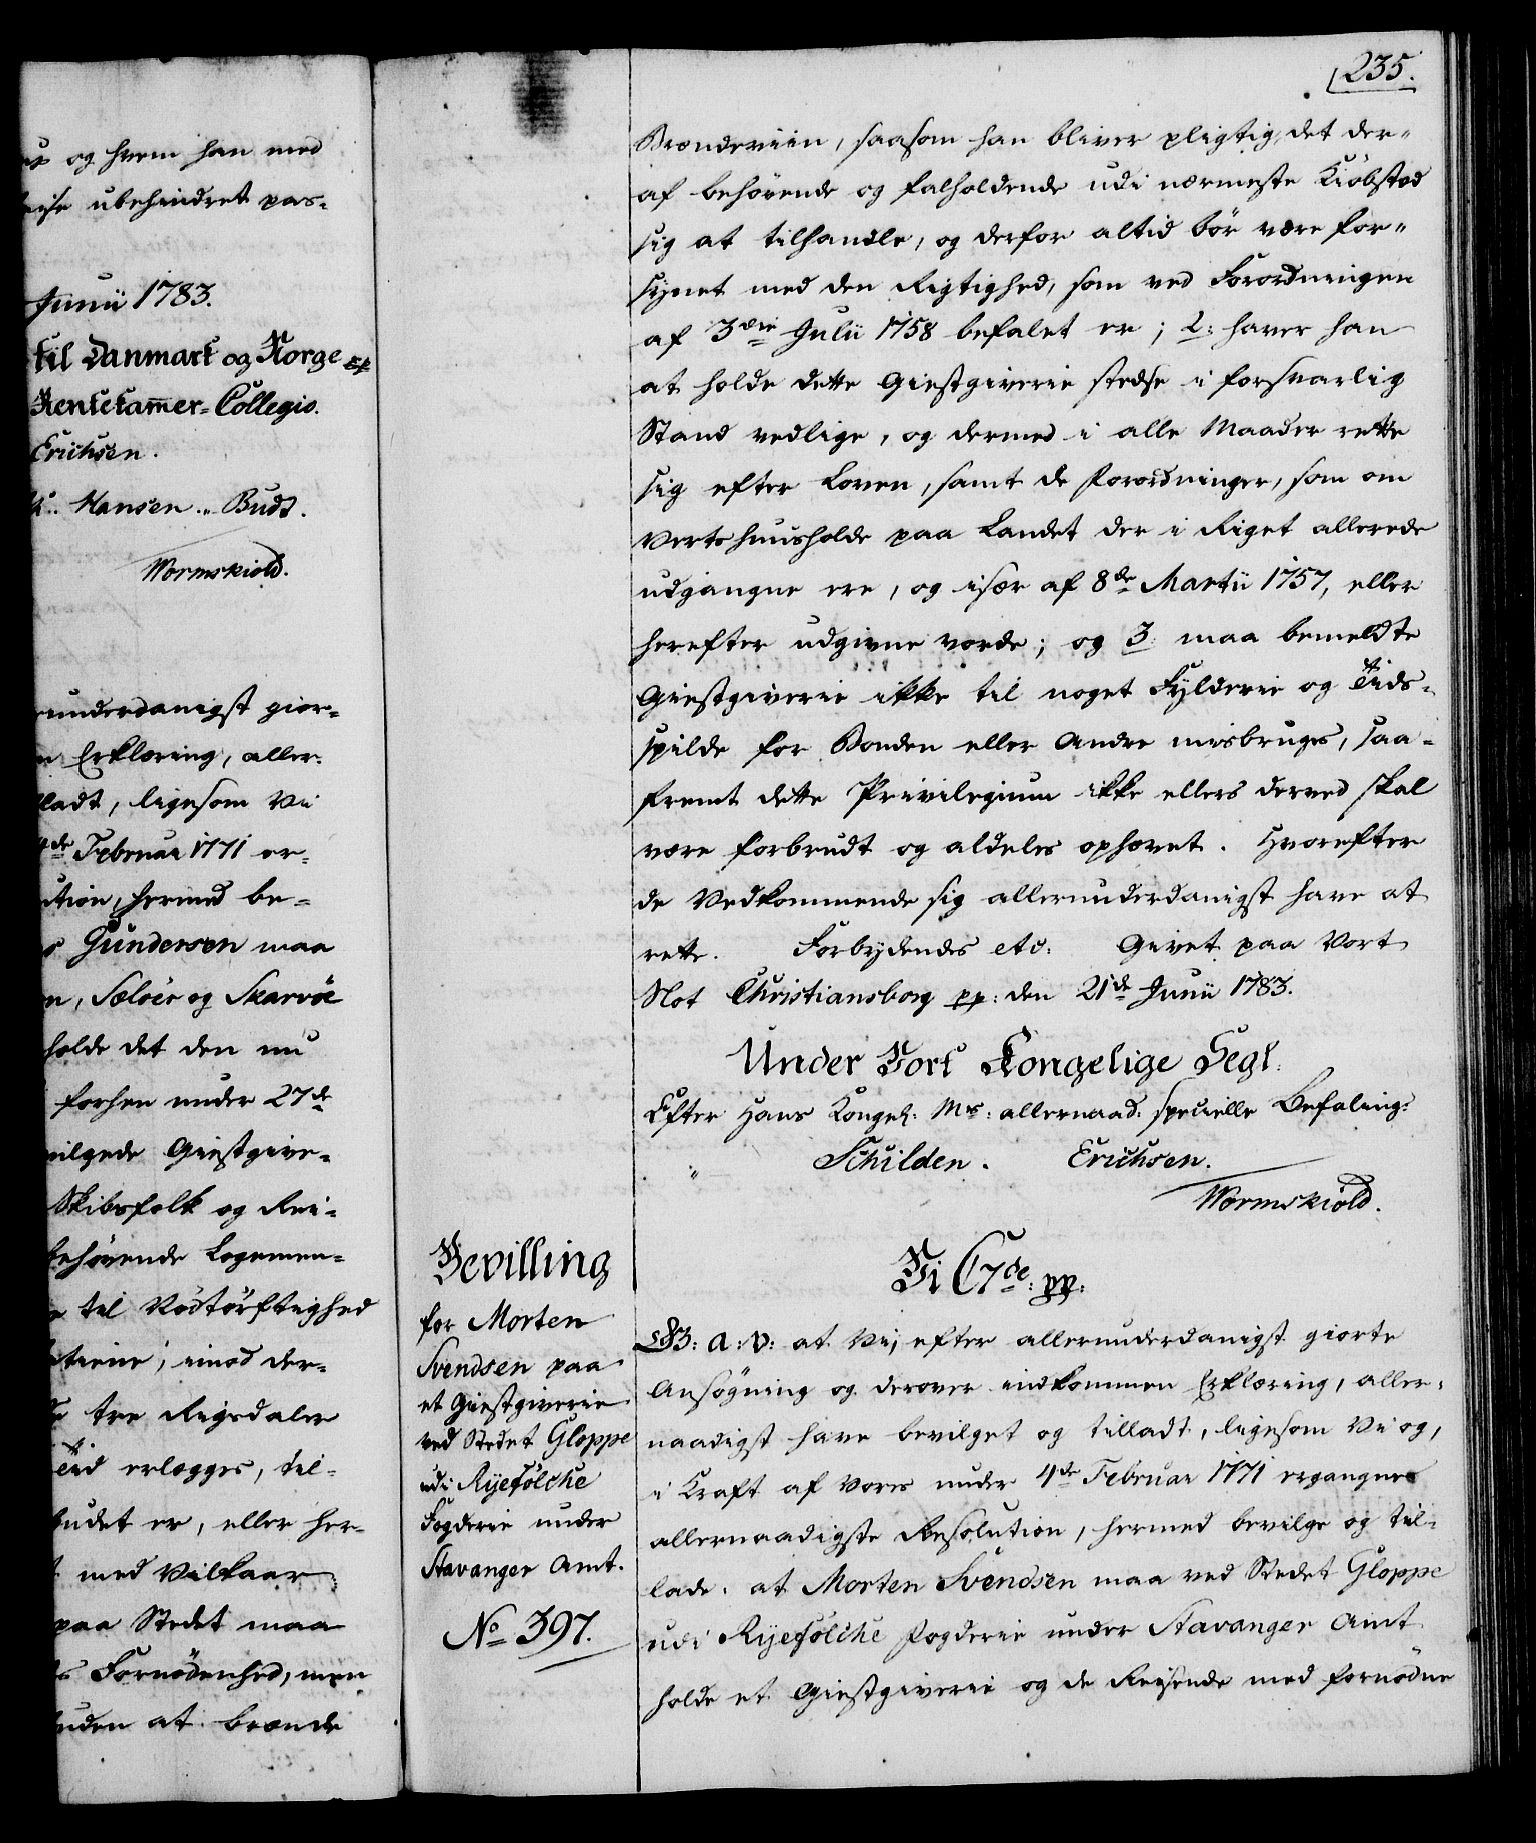 og hvem han med
ubehindret pas-
Junii 1783.
til Danmark og Norge
Rentekammer-Collegio.
Erichsen.
Hansen. Budt.
Wormskiold.
underdanigst gior-
Erklæring, aller-
ladt, ligesom Vi
4de Februar 1771 er-
ution, hermed be-
Gundersen maa
n, Seløer og Skarvøe
holde det den nu
forhen under 27de
vilgede Giestgive-
Skibsfolk og Rei-
behøvende Logemen-
til Nødtørftighed
inod der-
tre Rigsdaler
Tid erlægges, til-
budet er, eller her-
med Vilkaar
paa Stedet maa
Fornødenhed, men
uden at brænde
235.
Brændeviin, saasom han bliver pligtig, det der-
af behøvende og falholdende udi nærmeste Kiøbsted
sig at tilhandle, og derfor altid bør være for-
synet med den Rigtighed, som ved Forordningen
af 3die Julii 1758 befalet er; 2: haver han
at holde dette Giestgiverie stedse i forsvarlig
Stand vedlige, og dermed i alle Maader rette
sig efter Loven, samt de Forordninger, som om
Vertshuusholde paa Landet der i Riget allerede
udgangne ere, og især af 8de Martii 1757, eller
herefter udgivne vorde; og 3 maa bemeldte
Giestgiverie ikke til noget Fylderie og Tids-
spilde for Bonden eller Andre misbruges, saa-
fremt dette Privilegium ikke ellers derved skal
være forbrudt og aldeles ophævet. Hvorefter
de Vedkommende sig allerunderdanigst have at
rette. Forbydendes etc: Givet paa Vort
Slot Christiansborg pp: den 21de Junii 1783.
Under Vort Kongelige Segl.
Efter Hans Kongel: Ms: allernaad: specielle Befaling.
Schilden. Erichsen.
Wormskiold.
Bevilling
for Morten
Svendsen paa
et Giestgiverie
ved Stedet Gloppe
udi Ryefølche
Fogderie under
Stavanger Amt.
No 397.
Vi C7de: pp:
G: a: v: at Vi, efter allerunderdanigst giorte
Ansøgning og derover indkommen Erklæring, aller-
naadigst have bevilget og tilladt, ligesom Vi og,
i Kraft af Vores under 4de Februar 1771 ergangne
allernaadigste Resolution, hermed bevilge og til-
lade: at Morten Svendsen maa ved Stedet Gloppe
udi Ryefølche Fogderie under Stavanger Amt
holde et Giestgiverie og de Reisende med fornødne